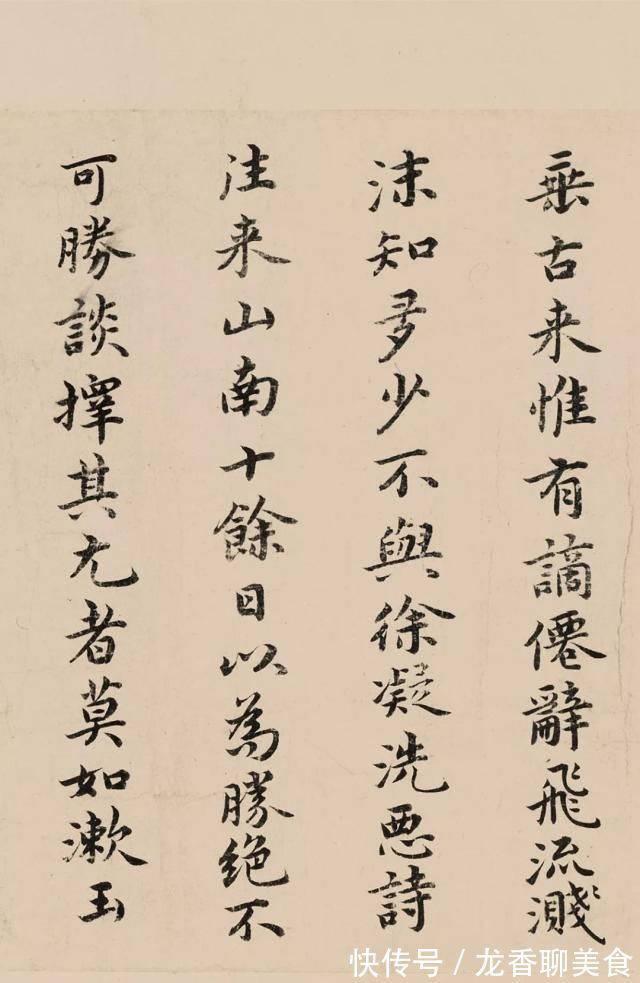 垂古来惟有謫僊辭飛流濺
沫知多少不與徐凝洗悪詩
往来山南十餘日以為勝絶不
可勝談擇其尤者莫如漱玉
快传号/龙香聊美食